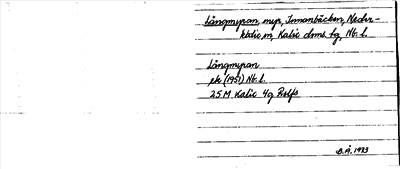 Långmyran, myr, Innanbäcken, Neder-
kalix sn, Kalix dms tg, Nb. l.
Långmyran
ek (1959) Nb. l.
25 M Kalix 4g Rolfs
B.Å. 1983